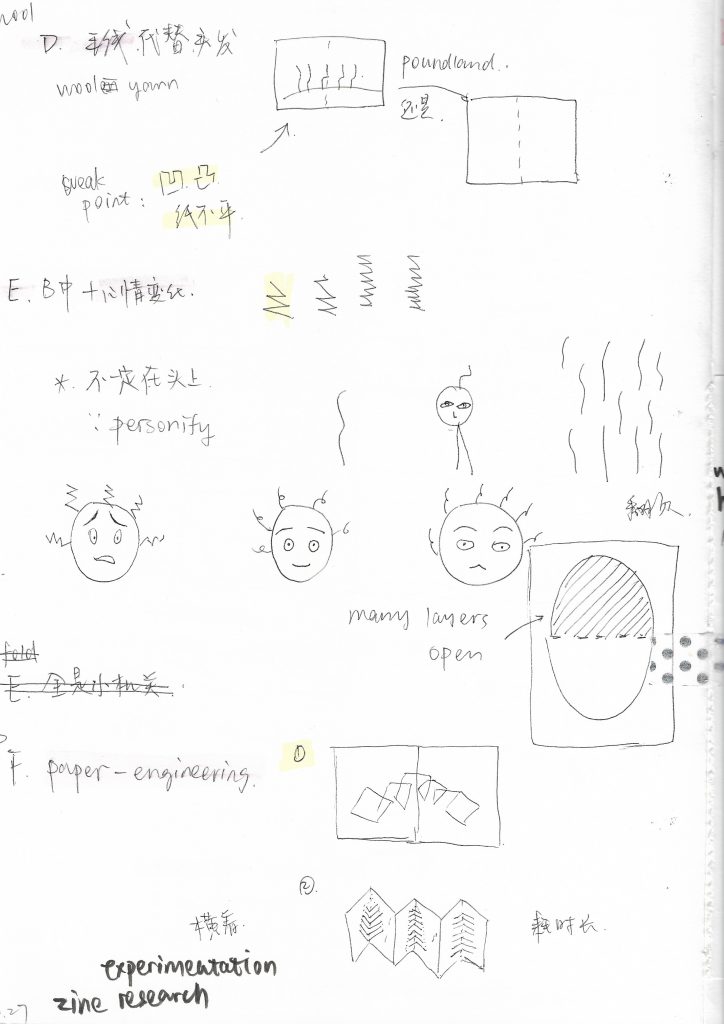 wool
D. 毛线代替头发
wool yarn
poundland..
还是.
weak
point: 凹 凸
纸不平.
E. B中 + 心情变化.
*. 不一定在头上.
∵ personify
many layers
open
fold
E. 全是小机关.
F. paper-engineering.
①
②
横着.
耗时长.
experimentation
zine research
.27